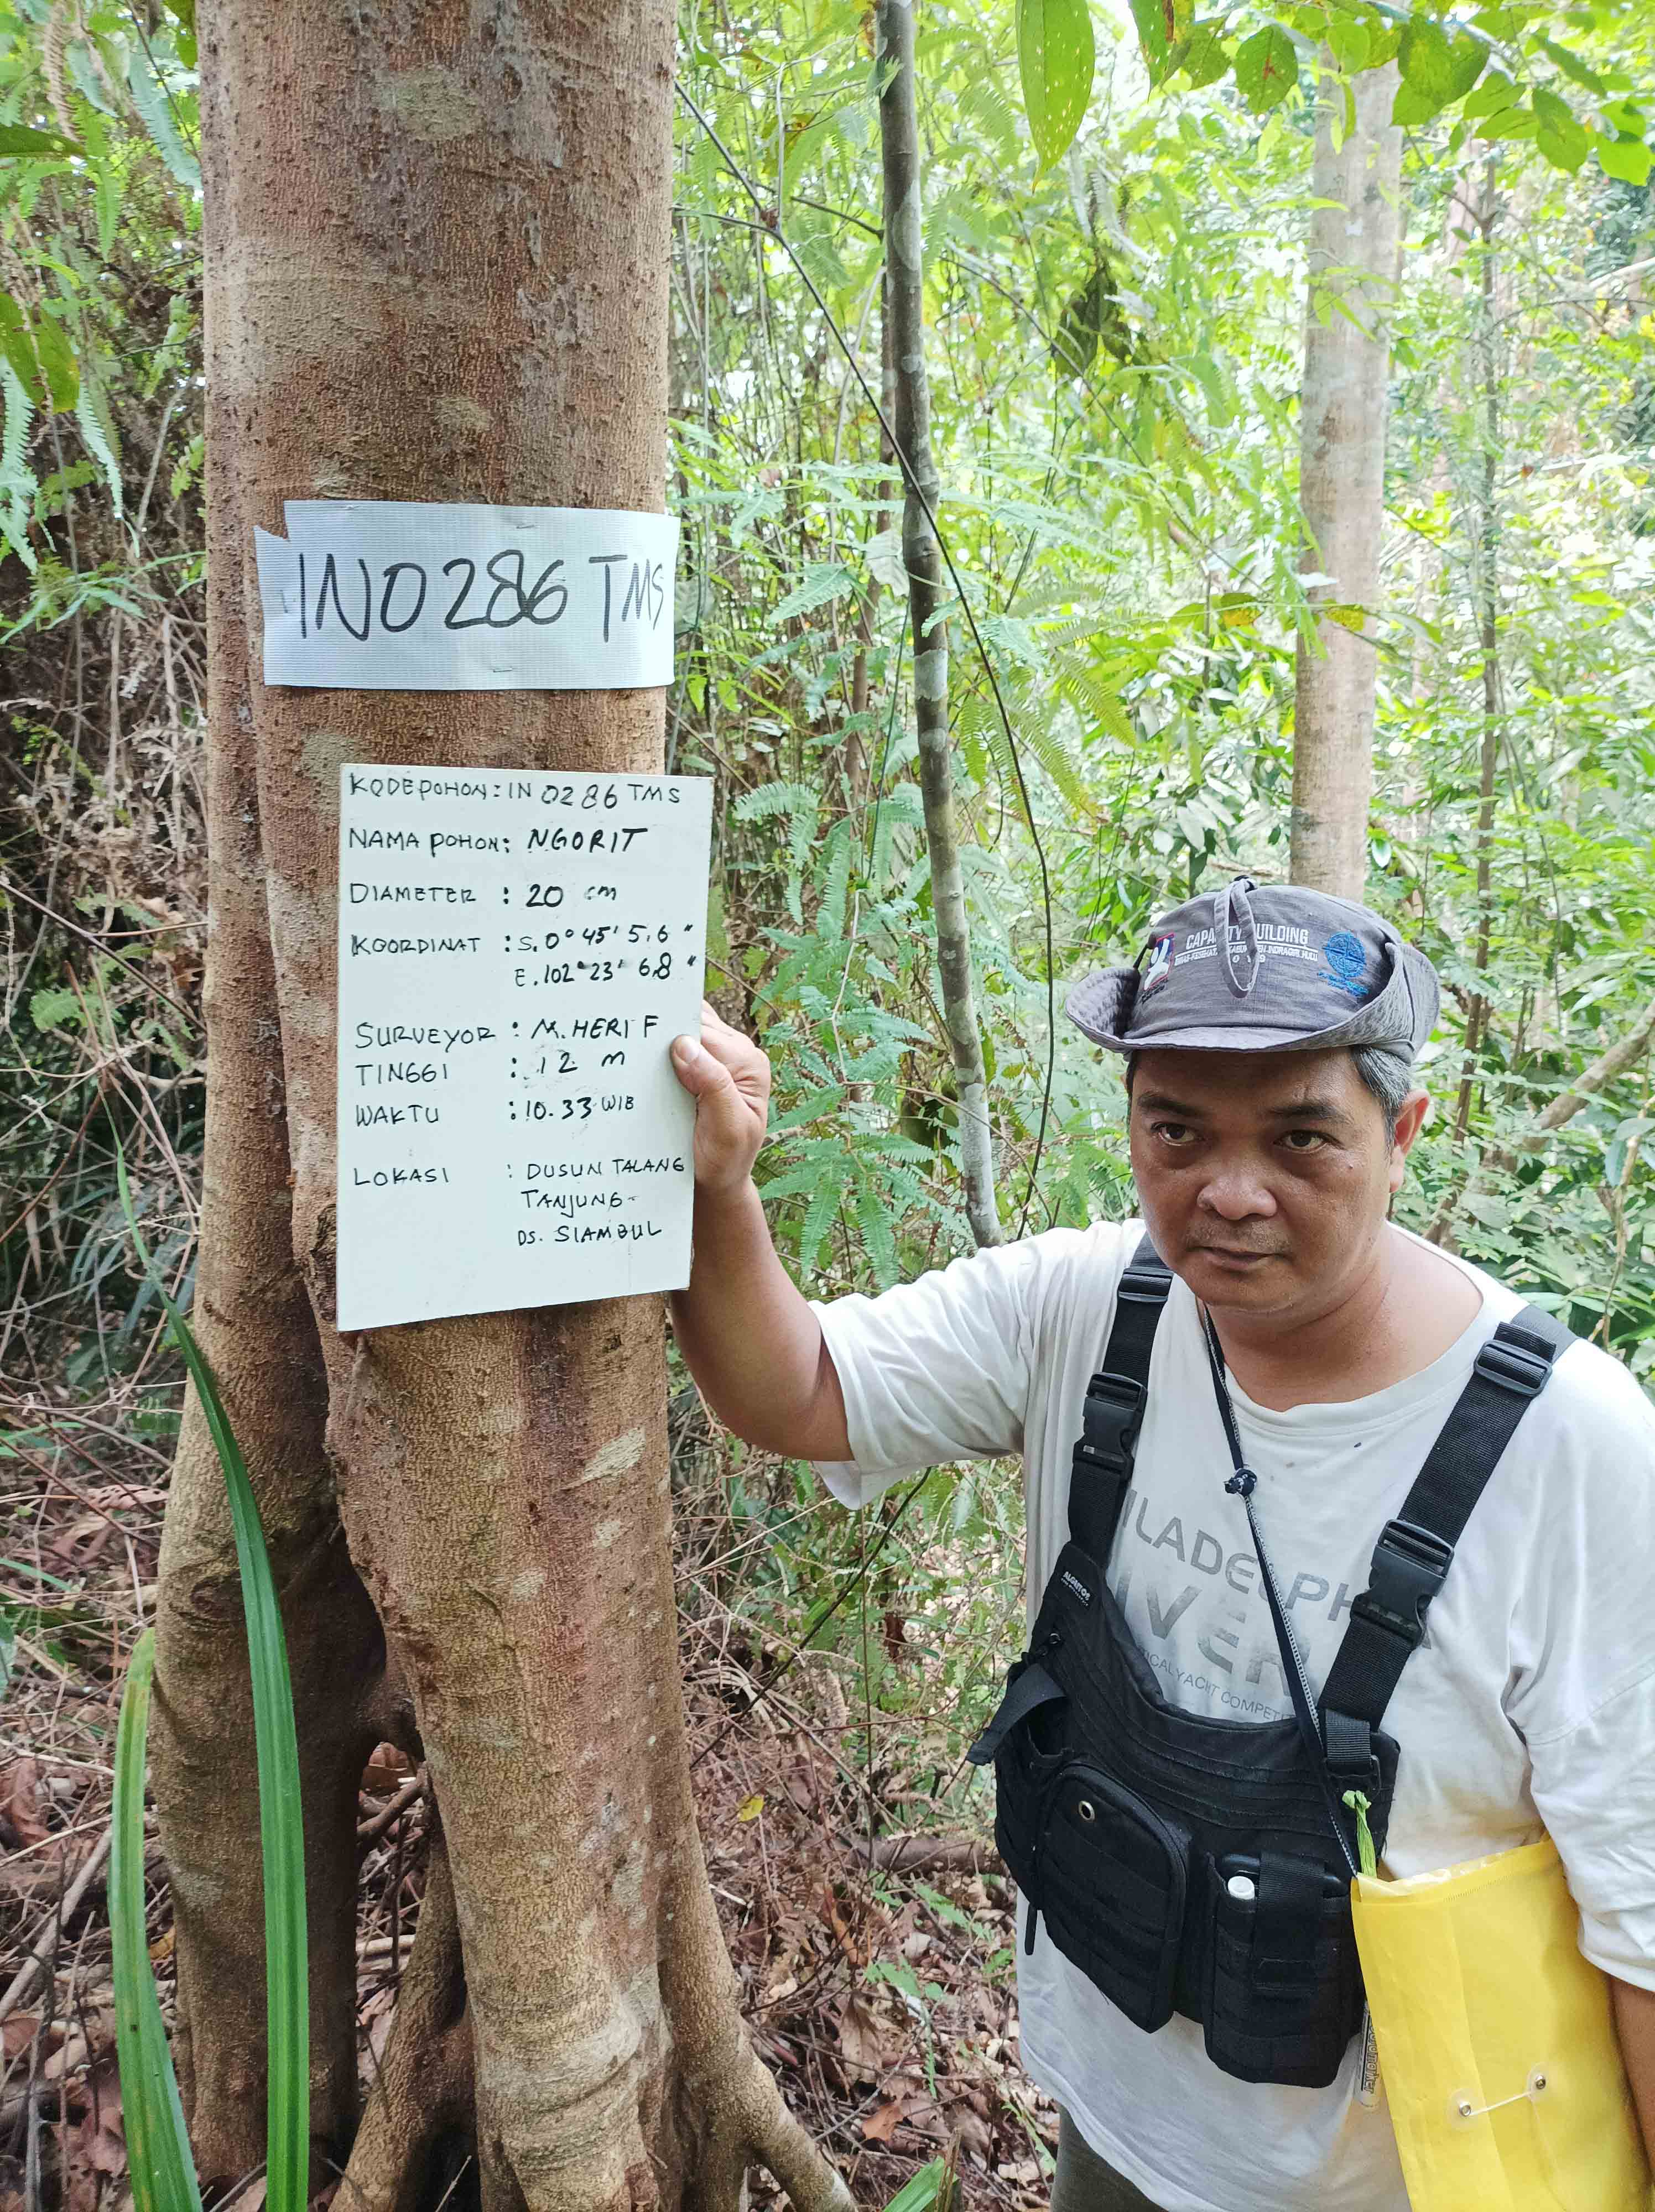 IN0286 TMS
KODE POHON : IN 0286 TMS
NAMA POHON : NGORIT
DIAMETER : 20 cm
KOORDINAT : S. 0° 45' 5,6 "
E. 102° 23' 6,8 "
SURVEYOR : M. HERI F
TINGGI : 12 m
WAKTU : 10.33 WIB
LOKASI : DUSUN TALANG
TANJUNG-
DS. SIAMBUL
CAPACITY BUILDING
INDRAGIRI HULU
ALGRITOS
YACHT COMPETIT